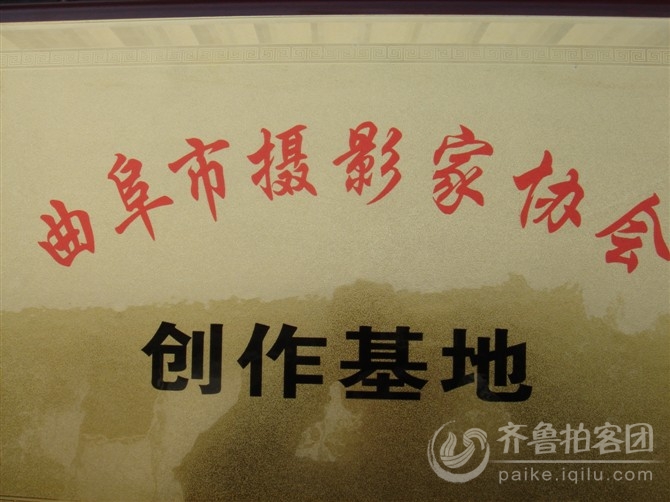 曲阜市摄影家协会
创作基地
齐鲁拍客团
paike.iqilu.com